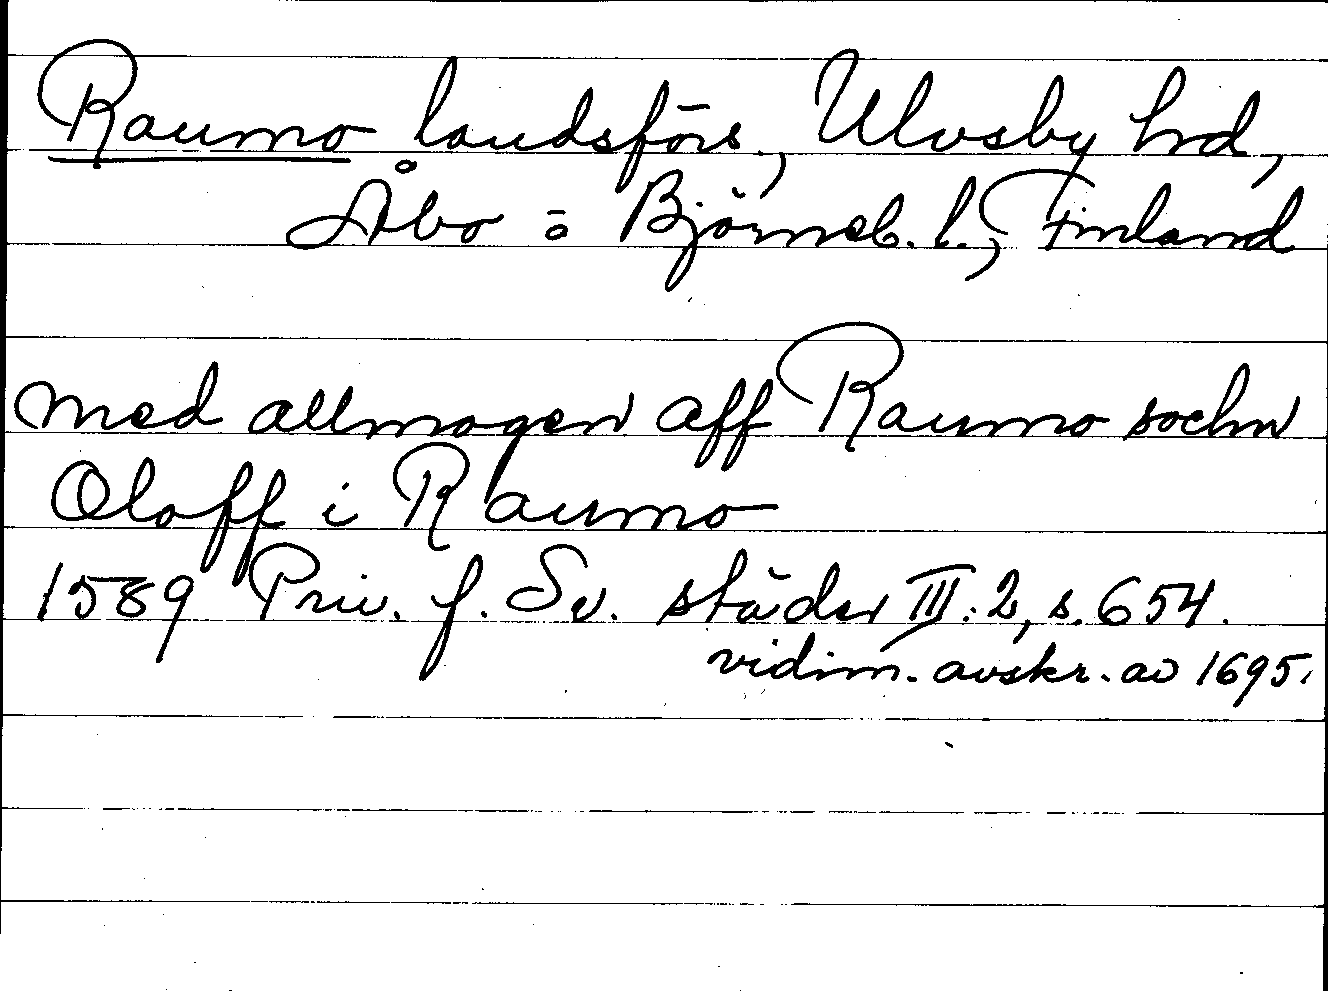 Raumo landsförs., Ulvsby hrd,
Åbo o Björneb. l., Finland
med allmogen aff Raumo sochn
Oloff i Raumo
1589 Priv. f. Sv. städer III:2, s. 654.
vidim. avskr. av 1695.